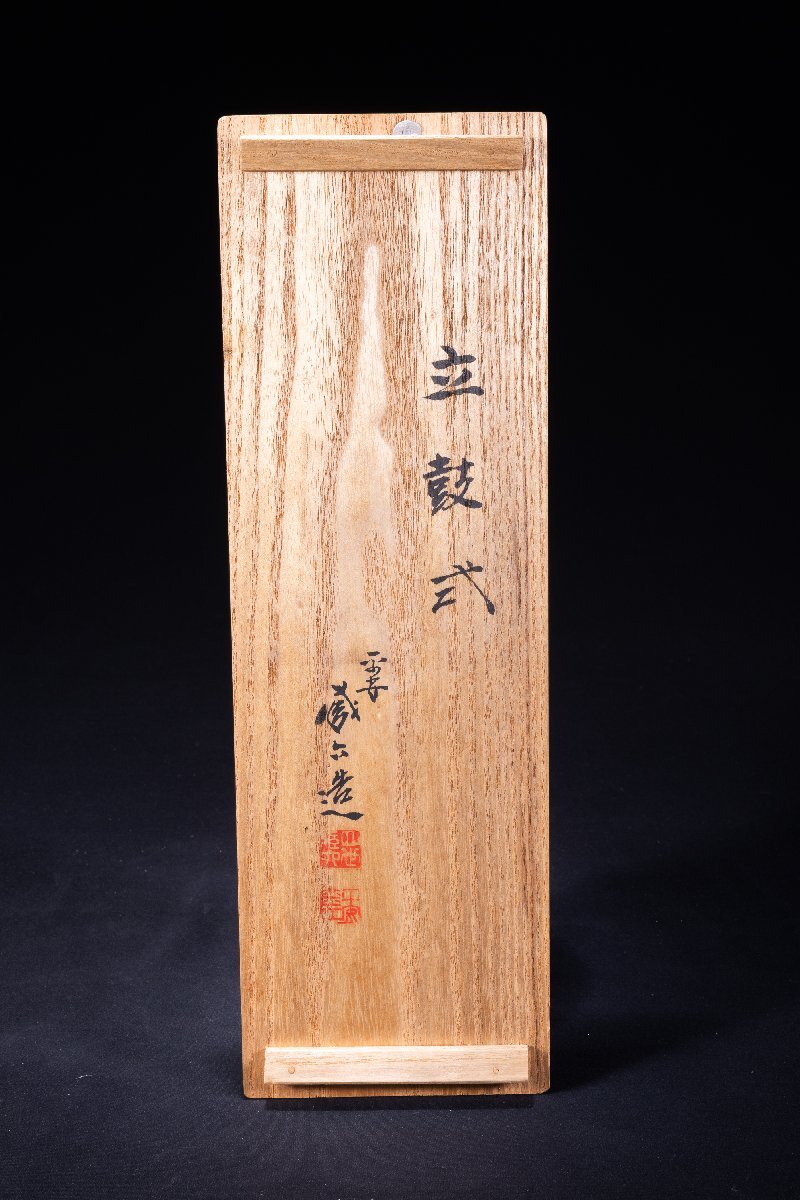 立鼓式
平安
蔵六造